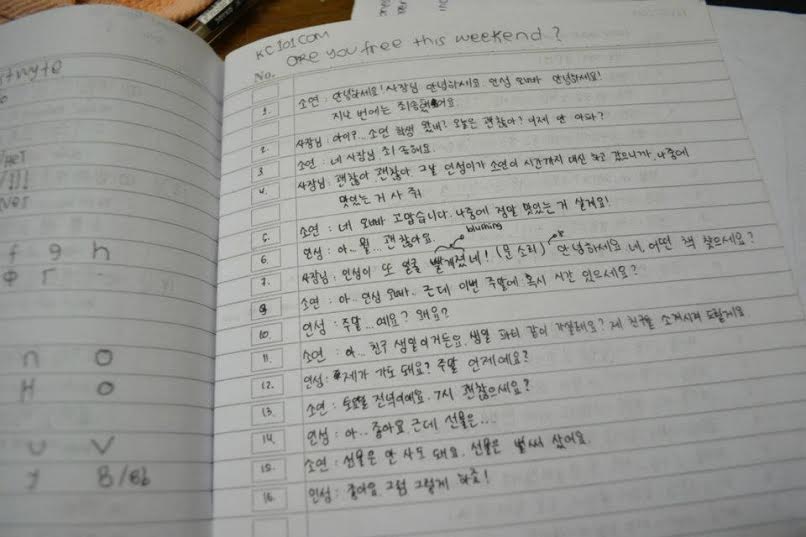 KC101.COM
are you free this weekend?
No.
1. 소연 : 안녕하세요! 사장님 안녕하세요. 인성 오빠 안녕하세요!
지난 번에는 죄송했어요.
2. 사장님 : 아이?... 소연 학생 왔네? 오늘은 괜찮아? 이제 안 아파?
3 소연 : 네 사장님 죄송해요.
4. 사장님 : 괜찮아 괜찮아. 그날 인성이가 소연이 시간까지 대신 하고 갔으니까, 나중에
맛있는 거 사 줘
5. 소연 : 네 오빠 고맙습니다. 나중에 정말 맛있는 거 살게요!
6. 인성 : 아... 뭘... 괜찮아요.
blushing
7. 사장님 : 인성이 또 얼굴 빨개졌네! (문 소리) 안녕하세요 네, 어떤 책 찾으세요?
9 소연 : 아.. 인성 오빠.. 근데 이번 주말에 혹시 시간 있으세요?
10. 인성 : 주말...예요? 왜요?
11. 소연 : 아... 친구 생일이거든요. 생일 파티 같이 가실래요? 제 친구들 소개시켜 드릴게요
12. 인성 : 제가 가도 돼요? 주말 언제예요?
13. 소연 : 토요일 저녁이에요. 7시 괜찮으세요?
14. 인성 : 아.. 좋아요. 근데 선물은...
15. 소연 : 선물은 안 사도 돼요. 선물은 벌써 샀어요.
16. 인성 : 좋아요. 그럼 그렇게 하죠!
f g h
Ф Г
n o
H O
u v
У В/Вb